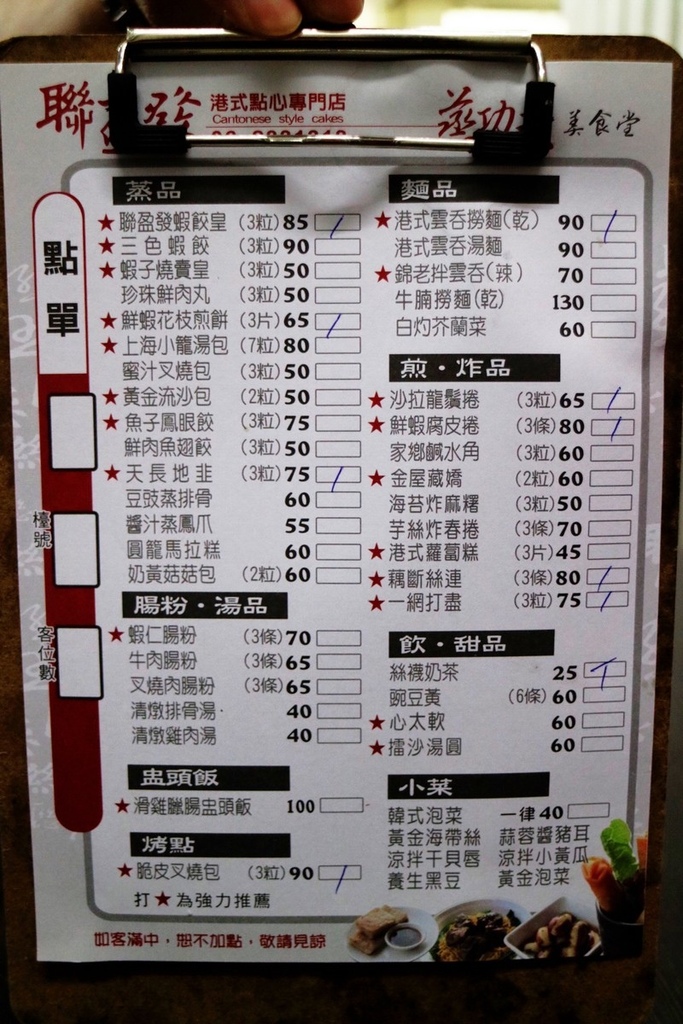 聯 發 港式點心專門店
Cantonese style cakes
蒸功 美食堂
點單
檯號
客位數
蒸品
★聯盈發蝦餃皇 (3粒) 85
★三色蝦餃 (3粒) 90
★蝦子燒賣皇 (3粒) 50
珍珠鮮肉丸 (3粒) 50
★鮮蝦花枝煎餅 (3片) 65
★上海小籠湯包 (7粒) 80
蜜汁叉燒包 (3粒) 50
★黃金流沙包 (2粒) 50
★魚子鳳眼餃 (3粒) 75
鮮肉魚翅餃 (3粒) 50
★天長地韭 (3粒) 75
豆豉蒸排骨 60
醬汁蒸鳳爪 55
圓籠馬拉糕 60
奶黃菇菇包 (2粒) 60
腸粉·湯品
★蝦仁腸粉 (3條) 70
牛肉腸粉 (3條) 65
叉燒肉腸粉 (3條) 65
清燉排骨湯 40
清燉雞肉湯 40
盅頭飯
★滑雞臘腸盅頭飯 100
烤點
★脆皮叉燒包 (3粒) 90
打★為強力推薦
麵品
★港式雲吞撈麵(乾) 90
港式雲吞湯麵 90
★錦老拌雲吞(辣) 70
牛腩撈麵(乾) 130
白灼芥蘭菜 60
煎·炸品
★沙拉龍鬚捲 (3粒) 65
★鮮蝦腐皮捲 (3條) 80
家鄉鹹水角 (3粒) 60
★金屋藏嬌 (2粒) 60
海苔炸麻糬 (3粒) 50
芋絲炸春捲 (3條) 70
★港式蘿蔔糕 (3片) 45
★藕斷絲連 (3條) 80
★一網打盡 (3粒) 75
飲·甜品
絲襪奶茶 25
豌豆黃 (6條) 60
★心太軟 60
★擂沙湯圓 60
小菜
韓式泡菜 一律40
黃金海帶絲 蒜蓉醬豬耳
涼拌干貝唇 涼拌小黃瓜
養生黑豆 黃金泡菜
如客滿中，恕不加點，敬請見諒